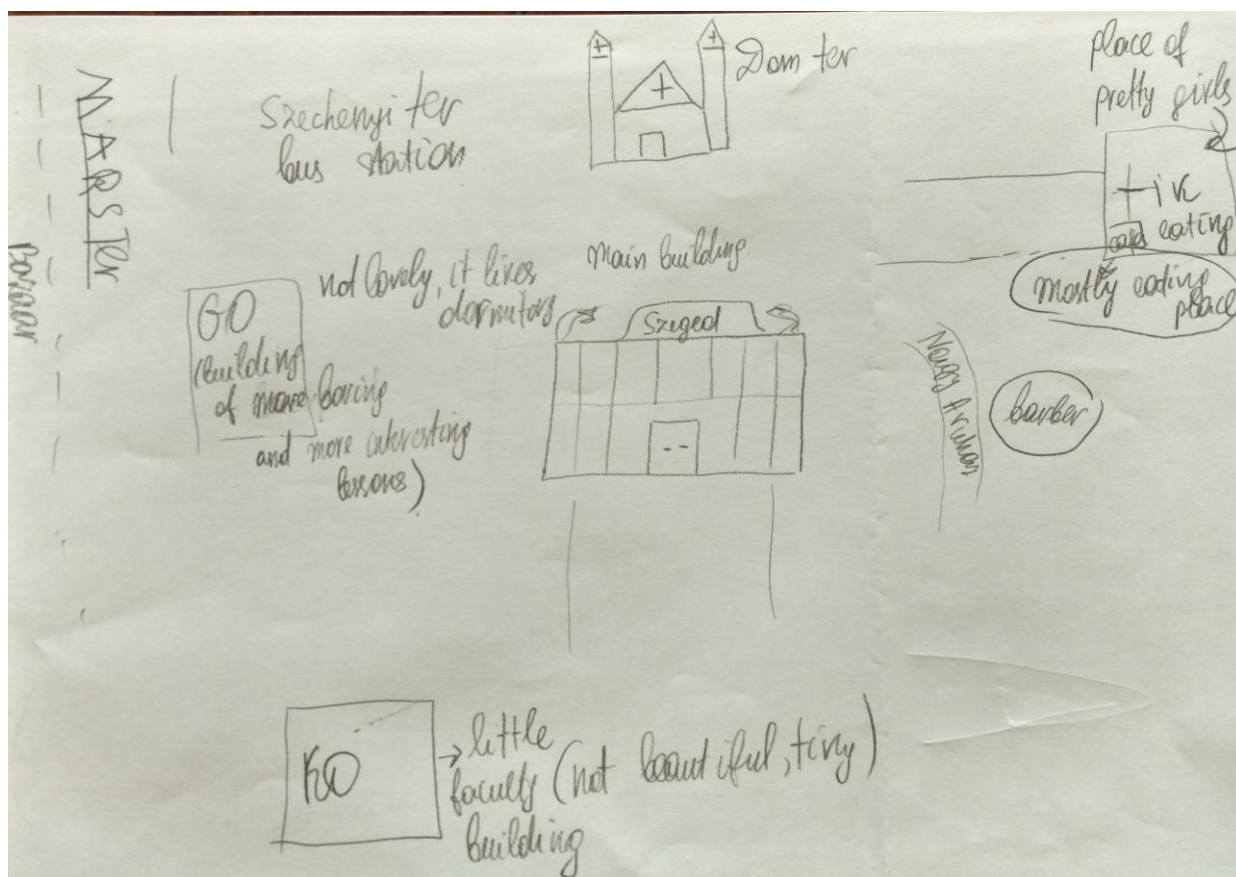 MARSTer
Bazaar
Szechenyi ter
bus station
Dom ter
place of
pretty girls
+ ik
eating
mostly eating
place
GO
(building
of more boring
and more interesting
lessons)
not lovely, it likes
dormitory
main building
Szeged
barber
KO
→ little
faculty (not beautiful, tiny)
building